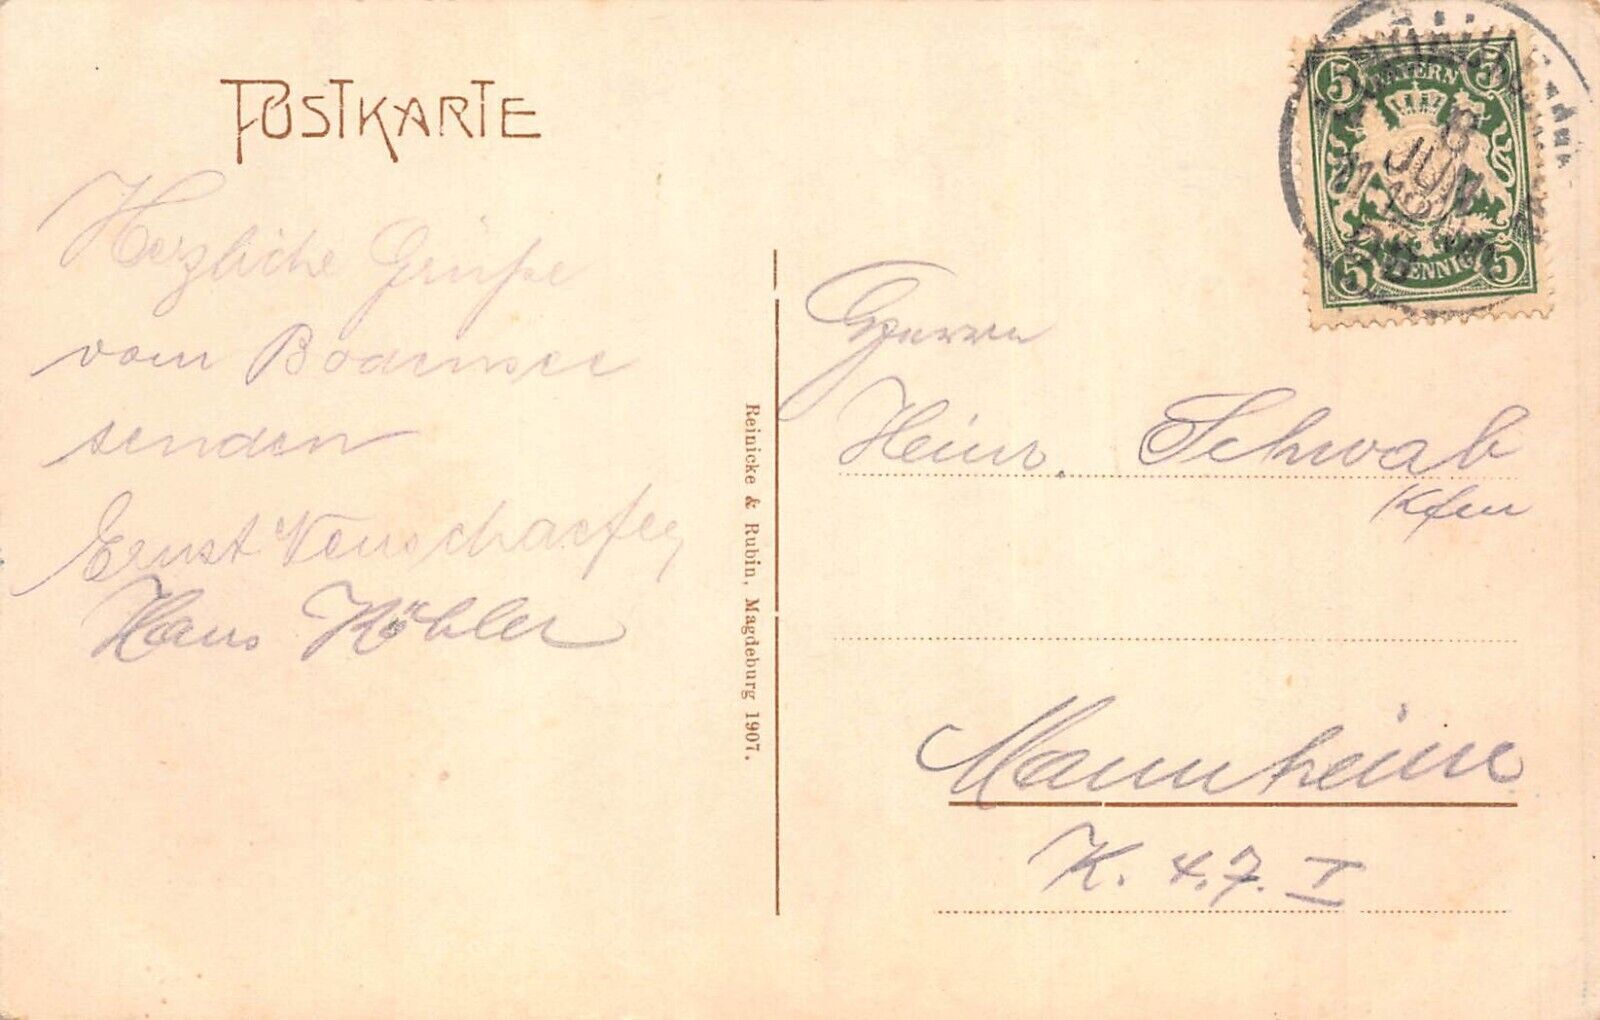 POSTKARTE
Herzliche Grüße
vom Bodensee
senden
Ernst
Hans Köhler
Reinicke & Rubin, Magdeburg 1907.
5 BAYERN 5
8
JUN
5 PFENNIG 5
Herrn
Heinr. Schwab
Kfm
Mannheim
K. 4.7. I